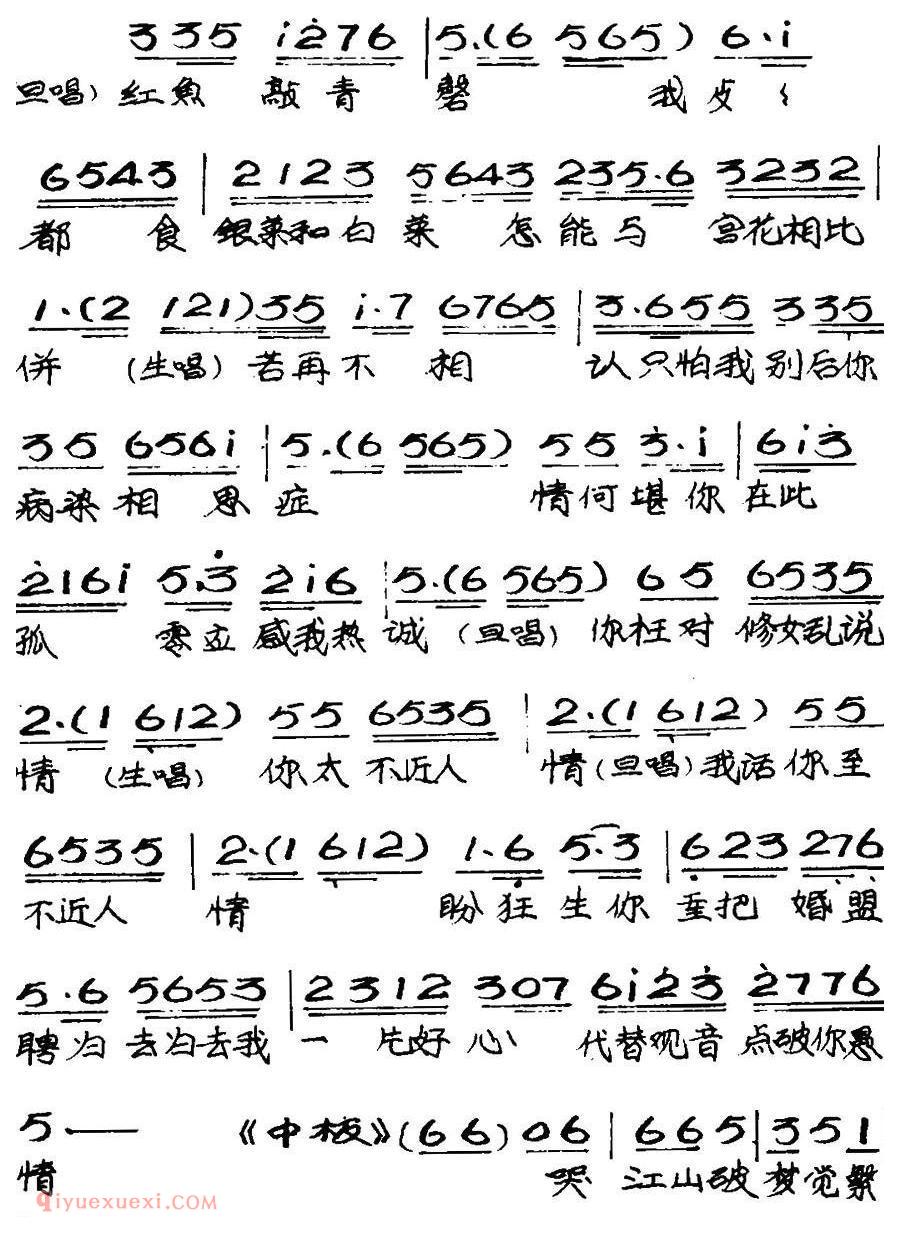 3 35 i276 | 5.(6 565) 6.i
旦唱）红魚 敲青 磬 我
6543 | 2123 5643 235.6 3232 |
都 食 银菜和白菜 怎能与 宫花相比
1.(2 121)35 i.7 6765 | 3.655 335
併 (生唱) 若再不 相 认只怕我别后你
35 656i | 5.(6 565) 55 3.i | 6i3
病染相 思 症 情何堪你在此
216i 5.3 2i6 | 5.(6 565) 65 6535
孤 零立 感我热 诚 (旦唱) 你枉对 修女乱说
2.(1 612) 55 6535 | 2.(1 612) 55
情 (生唱) 你太 不近人 情(旦唱)我话你至
6535 | 2.(1 612) 1.6 5.3 | 623 276
不近人 情 盼狂生你 垂把 婚盟
5.6 5653 | 2312 307 6i23 2776
聘归 去归去我 一 片好 心 代替观音 点破你愚
5 — — 《中板》(66) 06 | 665 | 351
情 哭 江山破 梦觉繁
Qiyuexuexi.com